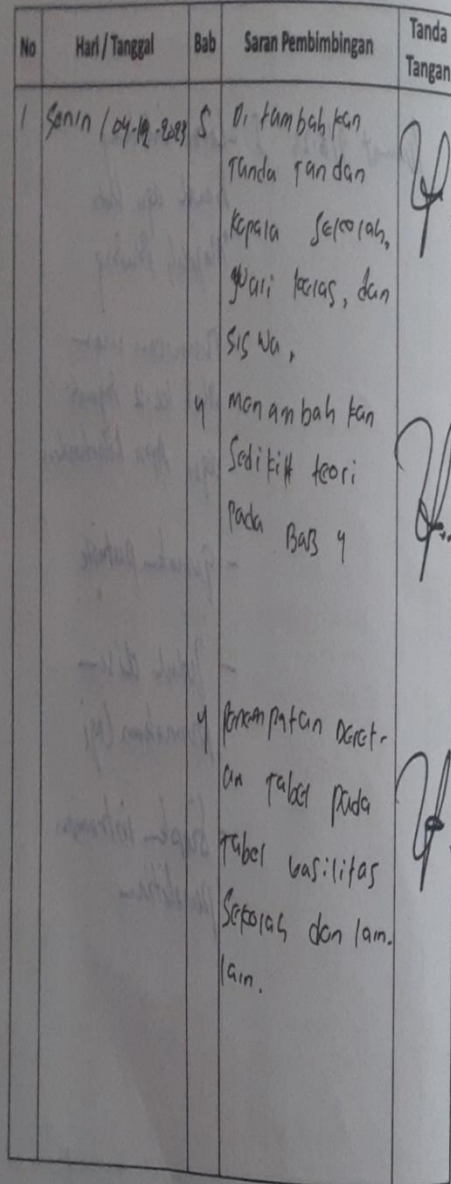 No Hari / Tanggal Bab Saran Pembimbingan Tanda Tangan
1 Senin / 04-12-2023 5 Di tambah kan
Tanda Tandan
Kepala Sekolah,
wali kelas, dan
siswa,
4 Menambah kan
Sedikit teori
pada BAB 4
4 Penempatan Deret-
an Tabel pada
Tabel vasilitas
Sekolah dan lain-
lain.